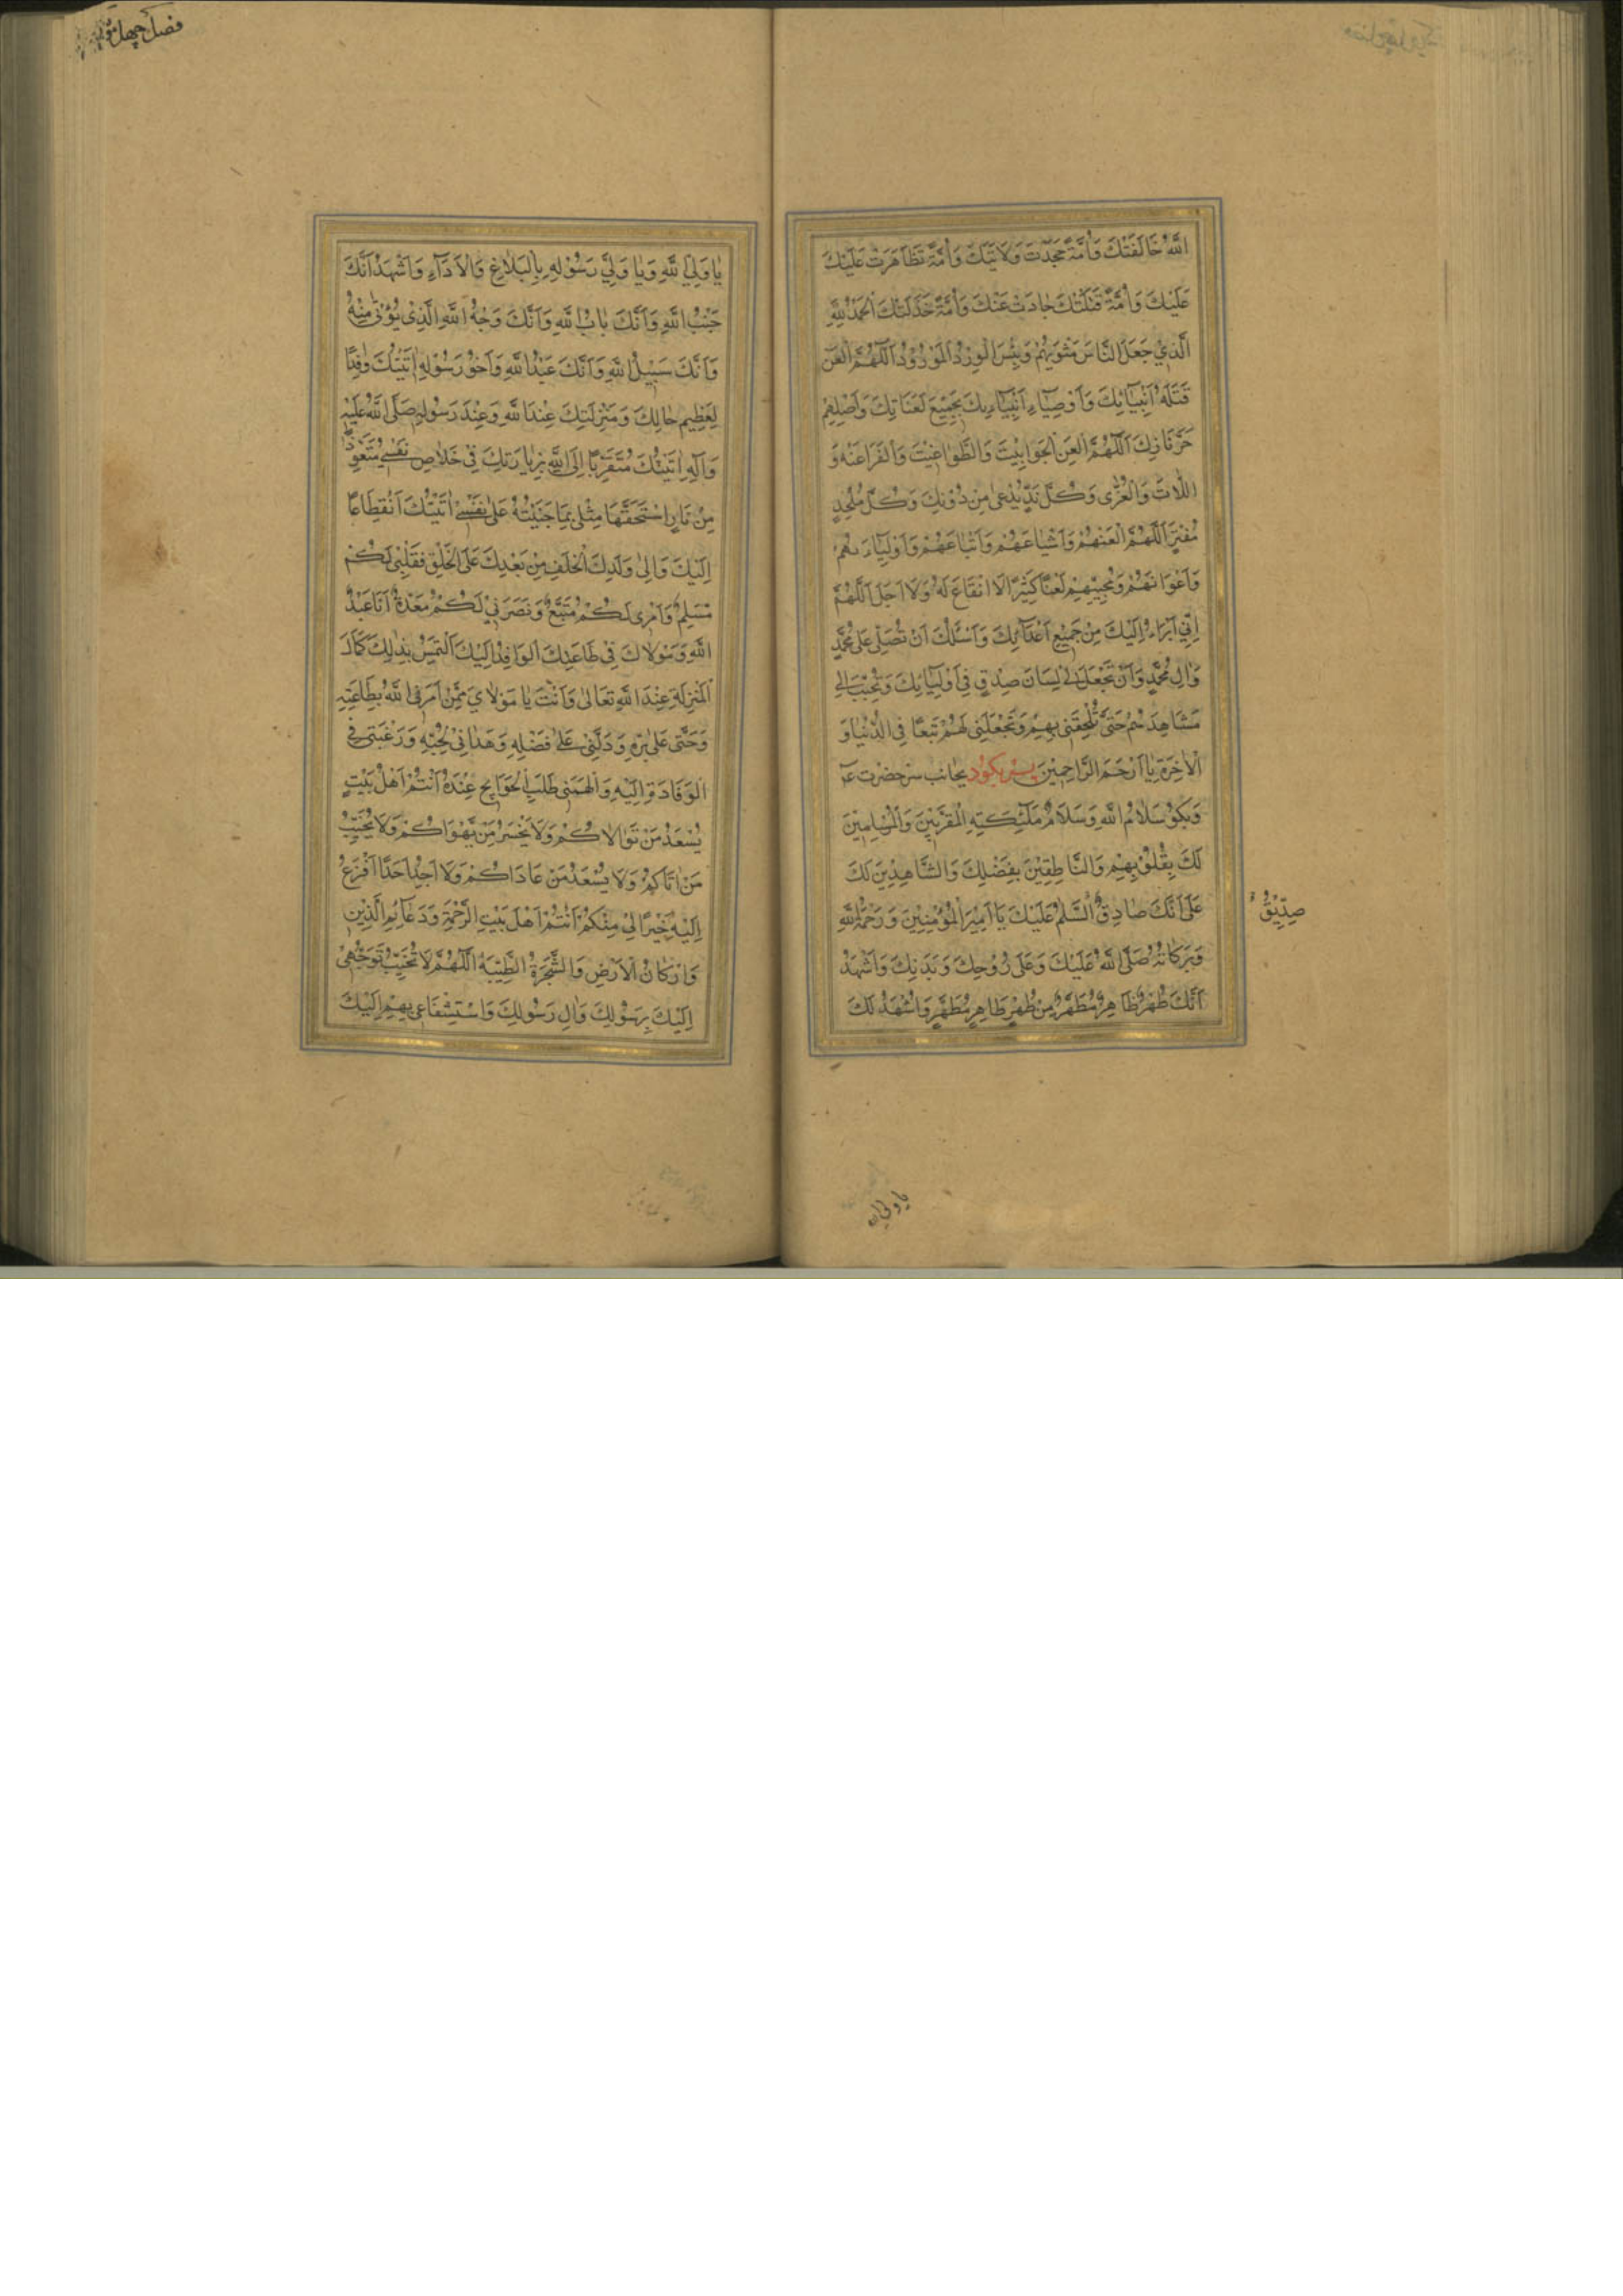 اللّٰهُ خَالَفَتْكَ وَاُمَّةً جَحَدَتْ وَلَايَتَكَ وَاُمَّةً تَظَاهَرَتْ عَلَيْكَ
عَلَيْكَ وَاُمَّةً قَتَلَتْكَ حَادَتْ عَنْكَ وَاُمَّةً خَذَلَتْكَ اَلْحَمْدُ لِلّٰهِ
الَّذِيْ جَعَلَ النَّاسَ مَثْوَيهُمْ وَبِئْسَ الْوِرْدُ الْمَوْرُوْدُ اَللّٰهُمَّ الْعَنْ
قَتَلَةَ اَنْبِيَائِكَ وَاَوْصِيَاءِ اَنْبِيَاءِكَ بِجَمِيْعِ لَعَنَاتِكَ وَاَصْلِهِمْ
حَرَّنَارِكَ اَللّٰهُمَّ الْعَنِ الْجَوَابِيْتَ وَالطَّوَاغِيْتَ وَالْفَرَاعِنَةَ وَ
اللَّاتَ وَالْعُزّٰى وَكُلَّ نِدٍّ يُدْعٰى مِنْ دُوْنِكَ وَكُلَّ مُلْحِدٍ
مُفْتَرٍ اَللّٰهُمَّ الْعَنْهُمْ وَاَشْيَاعَهُمْ وَاَتْبَاعَهُمْ وَاَوْلِيَاءَهُمْ
وَاَعْوَانَهُمْ وَمُحِبِّيْهِمْ لَعْنًا كَثِيْرًا لَا انْقِطَاعَ لَهُ وَلَا اَجَلَ اَللّٰهُمَّ
اِنِّيْ اَبْرَاءُ اِلَيْكَ مِنْ جَمِيْعِ اَعْدَآئِكَ وَاَسْئَلُكَ اَنْ تُصَلِّيَ عَلٰى مُحَمَّدٍ
وَاٰلِ مُحَمَّدٍ وَاَنْ تَجْعَلَ لِيْ لِسَانَ صِدْقٍ فِيْ اَوْلِيَائِكَ وَتُحَبِّبَ اِلَيَّ
مَشَاهِدَهُمْ حَتّٰى تُلْحِقَنِيْ بِهِمْ وَتَجْعَلَنِيْ لَهُمْ تَبَعًا فِي الدُّنْيَا وَ
الْاٰخِرَةِ يَا اَرْحَمَ الرَّاحِمِيْنَ پس بكود بجانب سر حضرت ع
وَبكو سَلَامُ اللّٰهِ وَسَلَامُ مَلٰٓئِكَتِهِ الْمُقَرَّبِيْنَ وَالْمُسَلِّمِيْنَ
لَكَ بِقُلُوْبِهِمْ وَالنَّاطِقِيْنَ بِفَضْلِكَ وَالشَّاهِدِيْنَ لَكَ
عَلٰى اَنَّكَ صَادِقٌ اَلسَّلَامُ عَلَيْكَ يَا اَمِيْرَ الْمُؤْمِنِيْنَ وَرَحْمَةُ اللّٰهِ
صِدِّيْقٌ
وَبَرَكَاتُهُ صَلَّى اللّٰهُ عَلَيْكَ وَعَلٰى رُوْحِكَ وَبَدَنِكَ وَاَشْهَدُ
اَنَّكَ طُهْرٌ طَاهِرٌ مُطَهَّرٌ مِنْ طُهْرٍ طَاهِرٍ مُطَهَّرٍ وَاَشْهَدُ لَكَ
يا ولي الله
فصل چهل
يَا وَلِيَّ اللّٰهِ وَيَا وَلِيَّ رَسُوْلِهِ بِالْبَلَاغِ وَالْاَدَآءِ وَاَشْهَدُ اَنَّكَ
جَنْبُ اللّٰهِ وَاَنَّكَ بَابُ اللّٰهِ وَاَنَّكَ وَجْهُ اللّٰهِ الَّذِيْ يُؤْتٰى مِنْهُ
وَاَنَّكَ سَبِيْلُ اللّٰهِ وَاَنَّكَ عَبْدُ اللّٰهِ وَاَخُوْ رَسُوْلِهِ اَتَيْتُكَ وَافِدًا
لِعَظِيْمِ حَالِكَ وَمَنْزِلَتِكَ عِنْدَ اللّٰهِ وَعِنْدَ رَسُوْلِهِ صَلَّى اللّٰهُ عَلَيْهِ
وَاٰلِهِ اَتَيْتُكَ مُتَقَرِّبًا اِلَى اللّٰهِ بِزِيَارَتِكَ فِيْ خَلَاصِ نَفْسِيْ مُتَعَوِّذًا
مِنْ نَارٍ اسْتَحَقَّهَا مِثْلِيْ بِمَا جَنَيْتُهُ عَلٰى نَفْسِيْ اَتَيْتُكَ اَنْقِطَاعًا
اِلَيْكَ وَاِلٰى وَلَدِكَ الْخَلَفِ مِنْ بَعْدِكَ عَلَى الْخَلْقِ فَقَلْبِيْ لَكُمْ
مُسَلِّمٌ وَاَمْرِيْ لَكُمْ مُتَّبِعٌ وَنَصْرَتِيْ لَكُمْ مُعَدَّةٌ اَنَا عَبْدُ
اللّٰهِ وَمَوْلَاكَ فِيْ طَاعَتِكَ الْوَافِدُ اِلَيْكَ اَلْتَمِسُ بِذٰلِكَ كَمَالَ
الْمَنْزِلَةِ عِنْدَ اللّٰهِ تَعَالٰى وَاَنْتَ يَا مَوْلَايَ مِمَّنْ اَمَرَنِيَ اللّٰهُ بِطَاعَتِهِ
وَحَثَّنِيْ عَلٰى بِرِّهِ وَدَلَّنِيْ عَلٰى فَضْلِهِ وَهَدَانِيْ لِحُبِّهِ وَرَغَّبَنِيْ فِي
الْوَفَادَةِ اِلَيْهِ وَاَلْهَمَنِيْ طَلَبَ الْحَوَائِجِ عِنْدَهُ اَنْتُمْ اَهْلُ بَيْتٍ
يُسْعَدُ مَنْ تَوَالَاكُمْ وَلَا يَخْسَرُ مَنْ يَهْوَاكُمْ وَلَا يُخَيَّبُ
مَنْ اَتَاكُمْ وَلَا يُسْعَدُ مَنْ عَادَاكُمْ وَلَا اَجِدُ اَحَدًا اَفْزَعُ
اِلَيْهِ خَيْرًا لِيْ مِنْكُمْ اَنْتُمْ اَهْلُ بَيْتِ الرَّحْمَةِ وَدَعَآئِمُ الدِّيْنِ
وَاَرْكَانُ الْاَرْضِ وَالشَّجَرَةُ الطَّيِّبَةُ اَللّٰهُمَّ لَا تُخَيِّبْ تَوَجُّهِيْ
اِلَيْكَ بِرَسُوْلِكَ وَاٰلِ رَسُوْلِكَ وَاسْتِشْفَاعِيْ بِهِمْ اِلَيْكَ